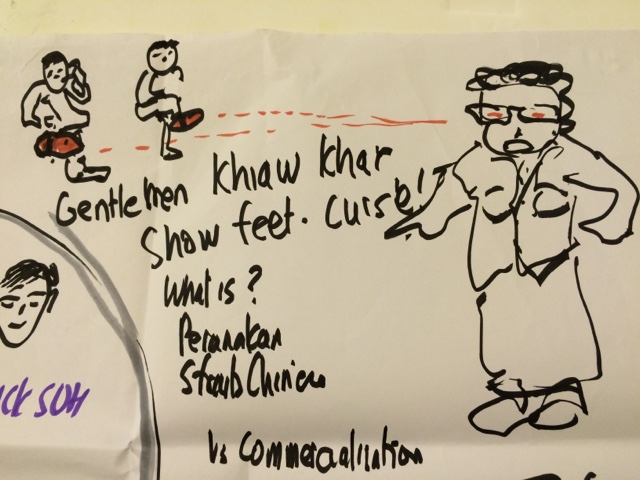 Gentlemen Khiaw Khar
Show feet. Curse!
What is?
Peranakan
Straits Chinese
Vs Commercialisation
CK SOH